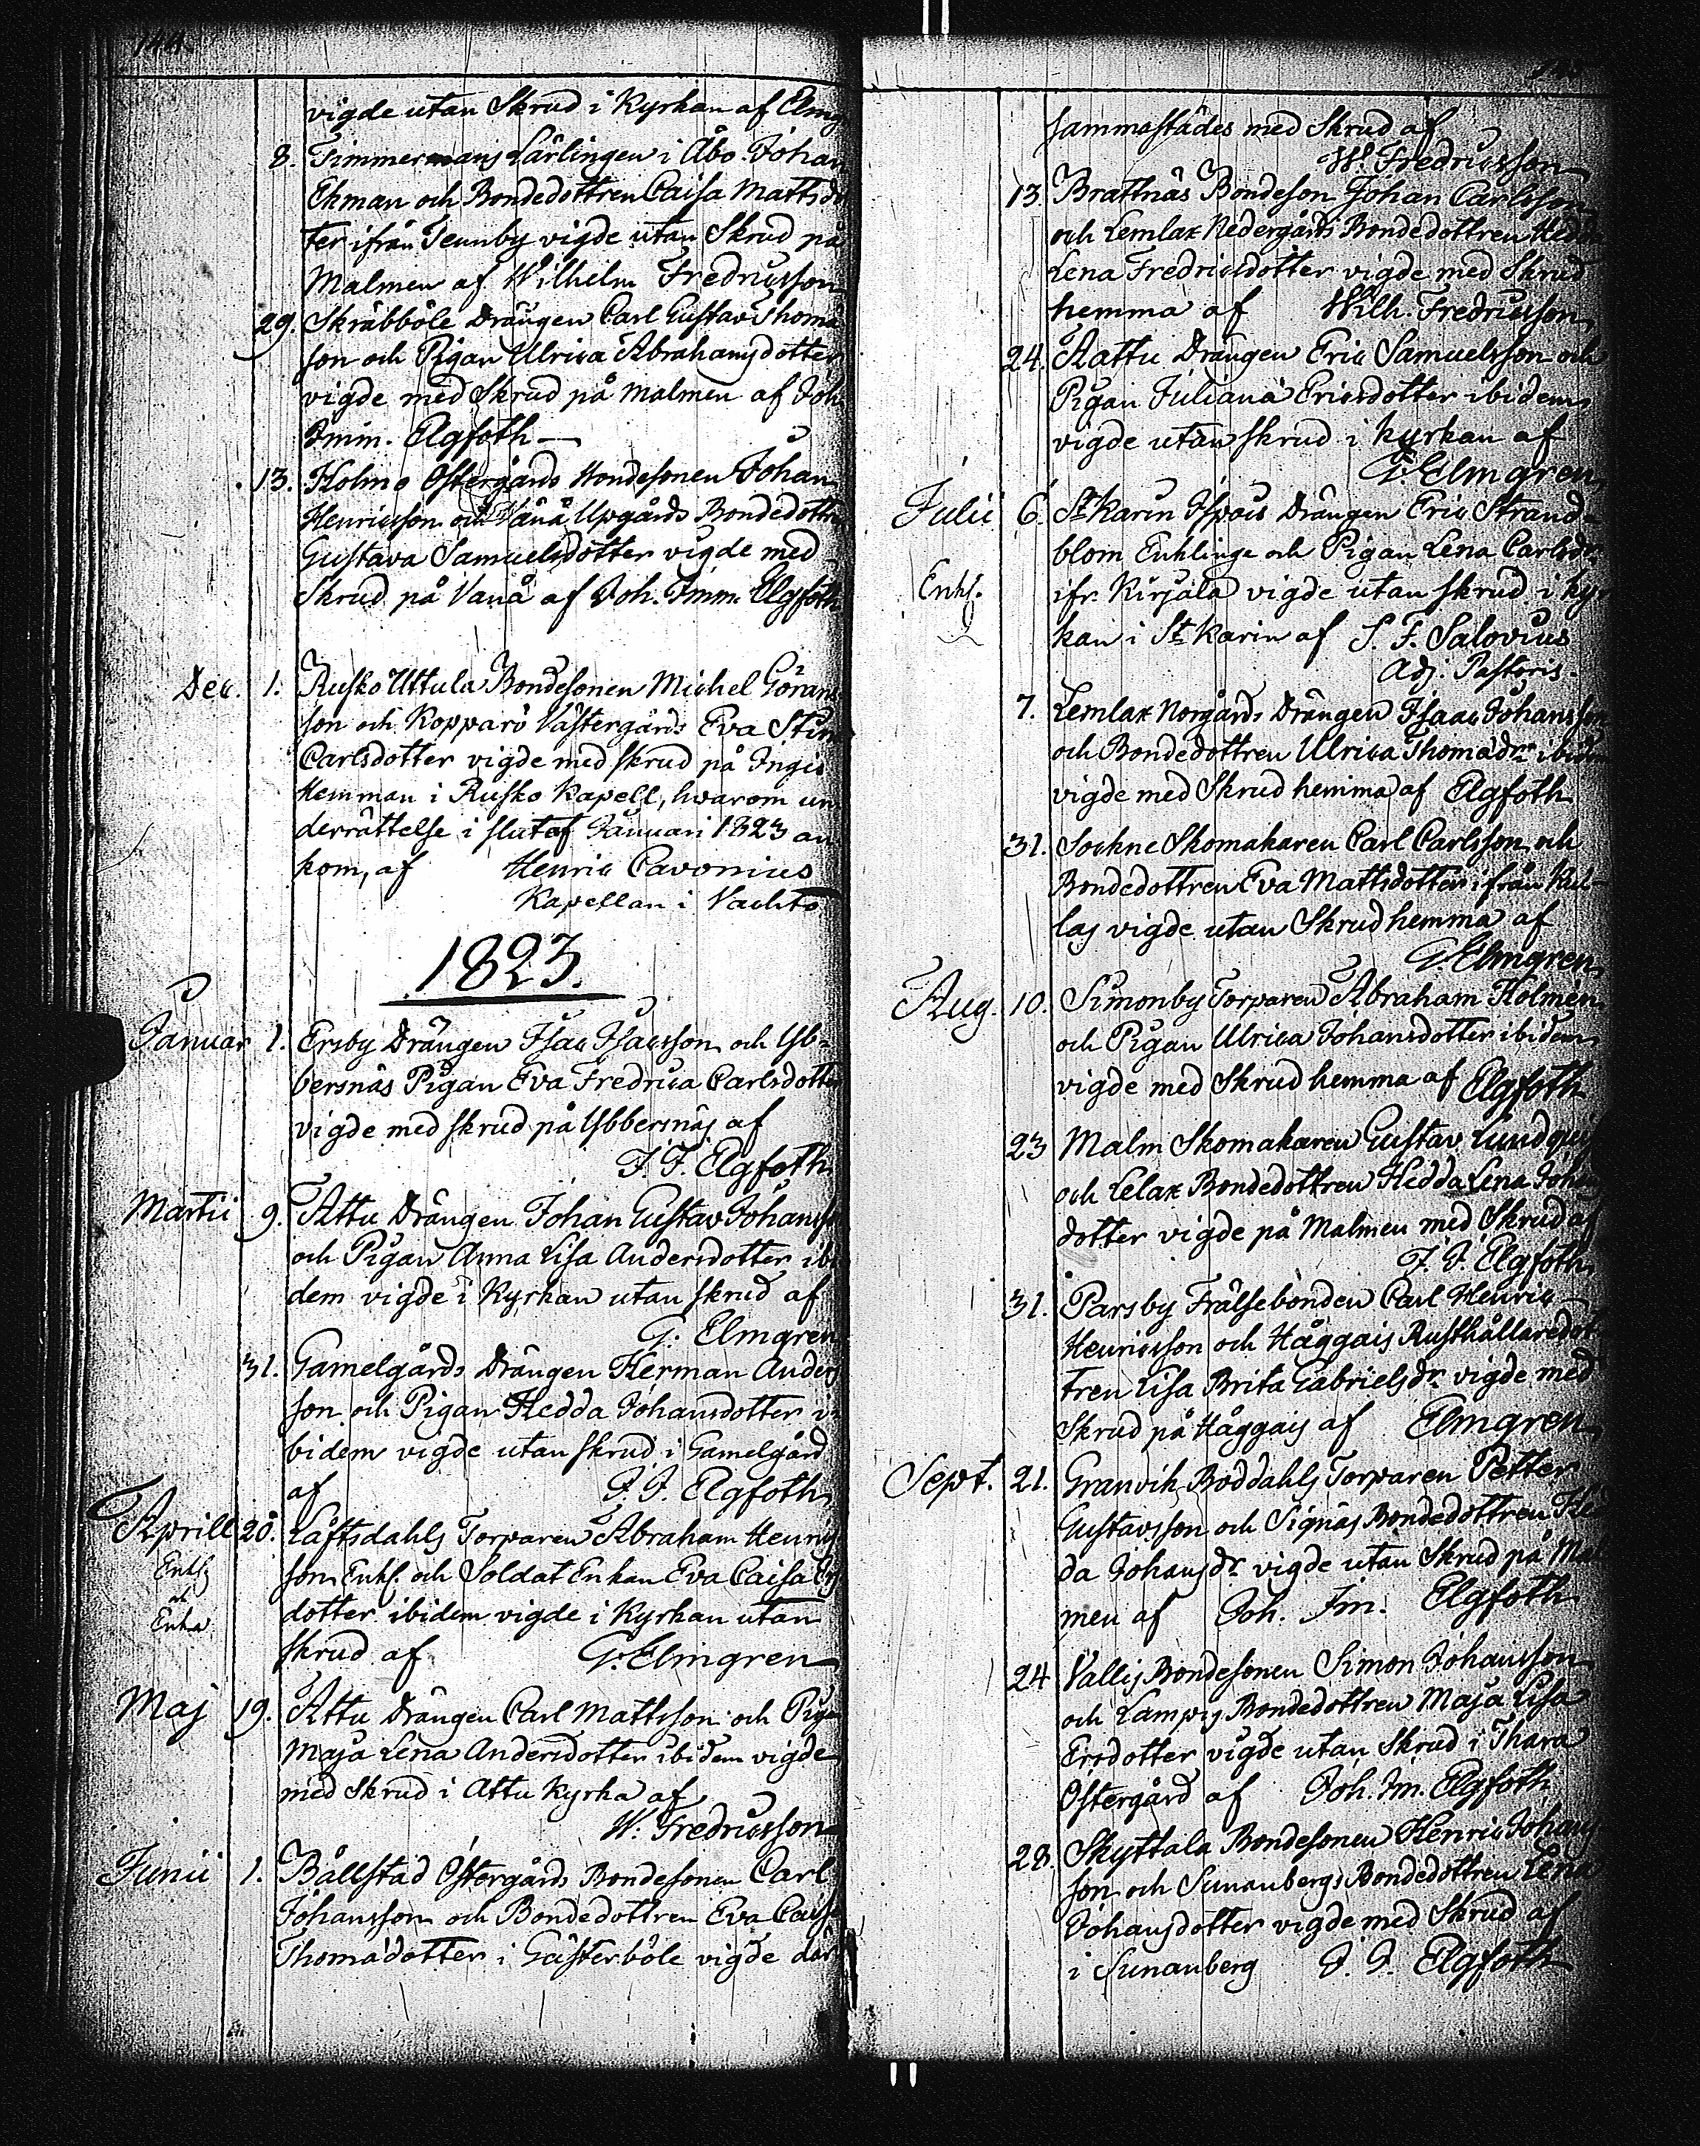 144.
vigde utan Skrud i Kyrkan af Elmg
8. Timmermans Lärlingen i Åbo Johan
Ekman och Bondedottren Caisa Mattsdo
ter ifrån Tennby vigde utan Skrud på
Malmen af Wilhelm Fredricsson
29. Skräbböle Drängen Carl Gustav Thoma
son och Pigan Ulrica Abrahamsdotter
vigde med Skrud på Malmen af Joh.
Imm. Elgfoth
13. Holmo Östergårds Bondesonen Johan
Henricsson och Vånå Upgårds Bondedottr
Gustava Samuelsdotter vigde med
Skrud på Vånå af Joh. Imm. Elgfoth
Dec. 1. Rusko Uttula Bondesonen Michel Görans
son och Kopparö Västergårds Eva Stin
Carlsdotter vigde med skrud på Ingis
Hemman i Rusko Kapell, hvarom un
derrättelse i slutet af Januari 1823 an
kom, af Henric Cavonius
Kapellan i Vachto
1823.
Januar 1. Ersby Drängen Isac Isacsson och Yb-
bersnäs Pigan Eva Fredrica Carlsdotter
vigde med skrud på Ybbersnäs af
J. J. Elgfoth
Martii 9. Attu Drängen Johan Gustav Johansso
och Pigan Anna Lisa Andersdotter ibi
dem vigde i Kyrkan utan skrud af
G. Elmgren
31. Gamelgårds Drängen Herman Anders
son och Pigan Hedda Johansdotter i-
bidem vigde utan skrud i Gamelgård
af J. J. Elgfoth
Aprill 20. Läftsdahls Torparen Abraham Henrics
Enkl.
son Enkl. och Soldat Enkan Eva Caisa Ers
och
dotter ibidem vigde i Kyrkan utan
Enka
skrud af G. Elmgren
Maj 19. Attu Drängen Carl Mattsson och Pigan
Maja Lena Andersdotter ibidem vigde
med Skrud i Attu Kyrka af
W. Fredricsson
Junii 1. Bållstad Östergårds Bondesonen Carl
Johansson och Bondedottren Eva Caisa
Thomadotter i Gästerböle vigde der
sammastädes med Skrud af
W. Fredricsson
13. Brattnäs Bondeson Johan Carlsson
och Lemlax Nedergårds Bondedottren Hedda
Lena Fredricsdotter vigde med Skrud
hemma af Wilh. Fredricsson
24. Aattu Drängen Eric Samuelsson och
Pigan Juliana Ericsdotter ibidem
vigde utan skrud i Kyrkan af
G. Elmgren
Julii 6. St Karin Ispois Drängen Eric Strand-
blom Enklinge och Pigan Lena Carlsdr
Enkl.
ifr. Kirjala vigde utan skrud i Kyr
kan i St Karin af S. F. Salovius
Adj. Pastoris.
7. Lemlax Norgårds Drängen Isaac Johansson
och Bondedottren Ulrica Thomadr ibidem
vigde med Skrud hemma af Elgfoth
31. Sockne Skomakaren Carl Carlsson och
Bondedottren Eva Mattsdotter ifrån Kul-
las vigde utan Skrud hemma af
G. Elmgren
Aug. 10. Simonby Torparen Abraham Holmén
och Pigan Ulrica Johansdotter ibidem
vigde med Skrud hemma af Elgfoth
23 Malm Skomakaren Gustav Lundquis
och Lelax Bondedottren Hedda Lena Johans
dotter vigde på Malmen med Skrud af
J. J. Elgfoth
31. Parsby Frälsebonden Carl Henric
Henricsson och Håggais Rusthållaredot
tren Lisa Brita Gabrielsdr vigde med
Skrud på Håggais af Elmgren
Sept. 21. Granvik Boddahls Torparen Petter
Gustavsson och Signäs Bondedottren Hed
da Johansdr vigde utan Skrud på Mal
men af Joh. Im. Elgfoth
24 Vallis Bondesonen Simon Johansson
och Lampis Bondedottren Maja Lisa
Ersdotter vigde utan Skrud i Thara
Östergård af Joh. Im. Elgfoth
28. Skyttala Bondesonen Henric Johans
son och Sunanbergs Bondedottren Lena
Johansdotter vigde med Skrud af
i Sunanberg J. J. Elgfoth